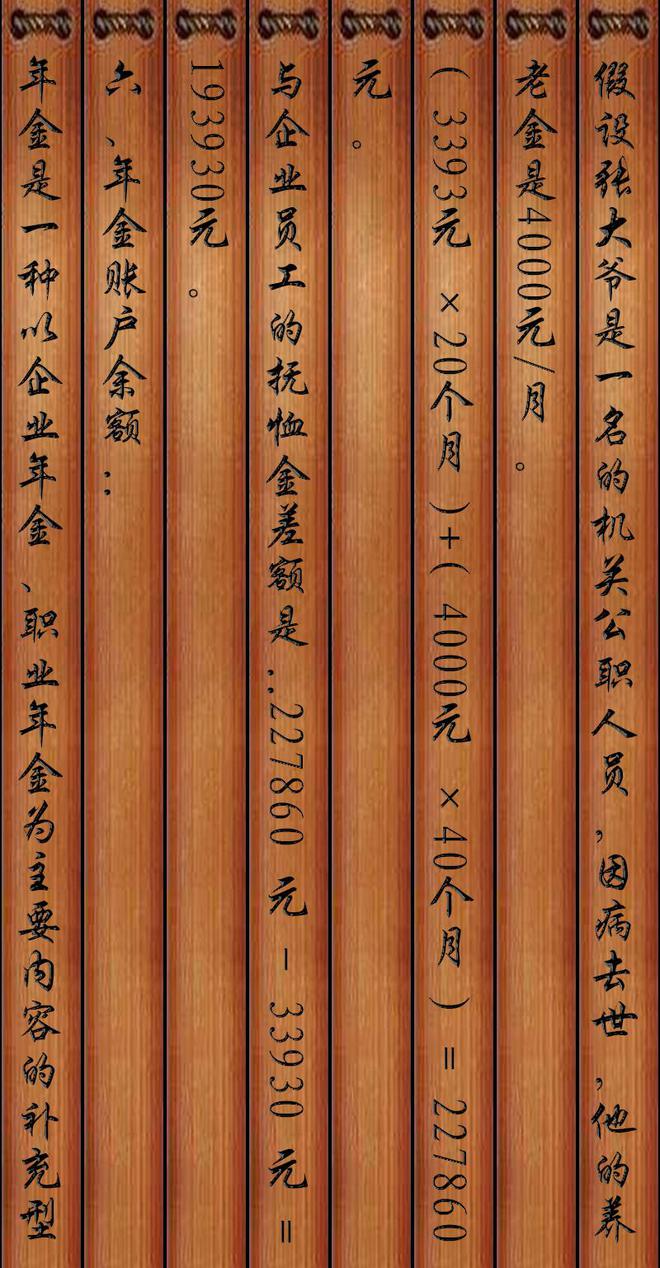 假设张大爷是一名的机关公职人员，因病去世，他的养
老金是4000元/月。
（3393元 ×20个月）+（4000元 ×40个月）= 227860
元。
与企业员工的抚恤金差额是..227860 元 - 33930 元 =
193930元。
六、年金账户余额：
年金是一种以企业年金、职业年金为主要内容的补充型